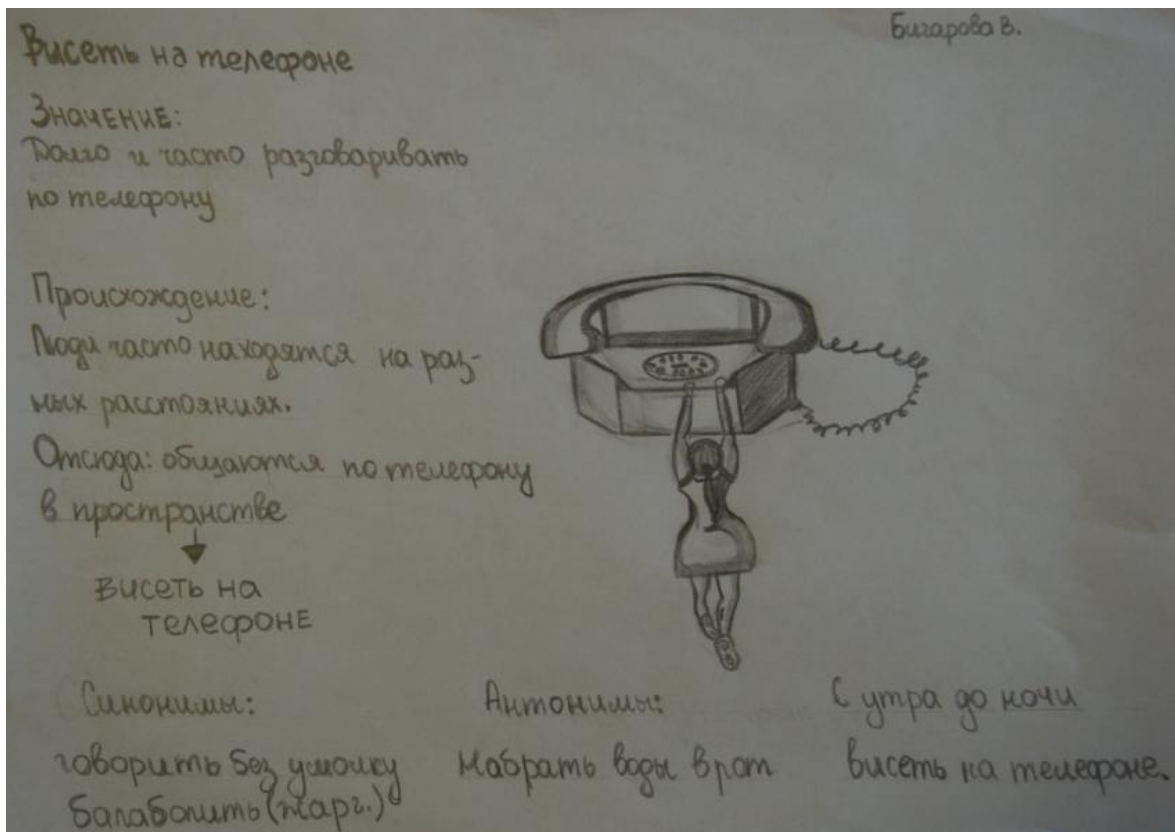 Бигарова В.
Висеть на телефоне
Значение:
Долго и часто разговаривать
по телефону
Происхождение:
Люди часто находятся на раз-
ных расстояниях.
Отсюда: общаются по телефону
в пространстве
висеть на
телефоне
Синонимы:
говорить без умолку
балаболить (жарг.)
Антонимы:
Набрать воды в рот
С утра до ночи
висеть на телефоне.